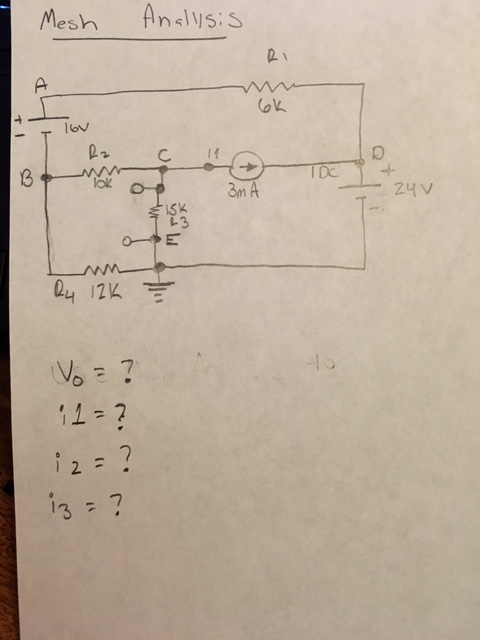 Mesh Analysis
R1
A
6K
+
-
16V
R2
C
11
D
B
10K
3mA
1DC
+
24V
-
15K
R3
E
R4 12K
to
Vo = ?
i1 = ?
i2 = ?
i3 = ?